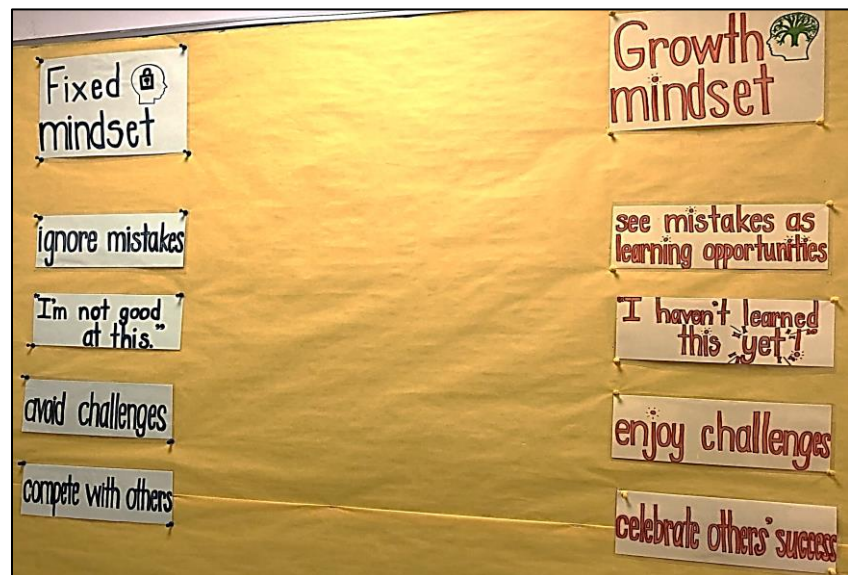 Fixed
mindset
ignore mistakes
"I'm not good
at this."
avoid challenges
compete with others
Growth
mindset
see mistakes as
learning opportunities
"I haven't learned
this yet!"
enjoy challenges
celebrate others' success